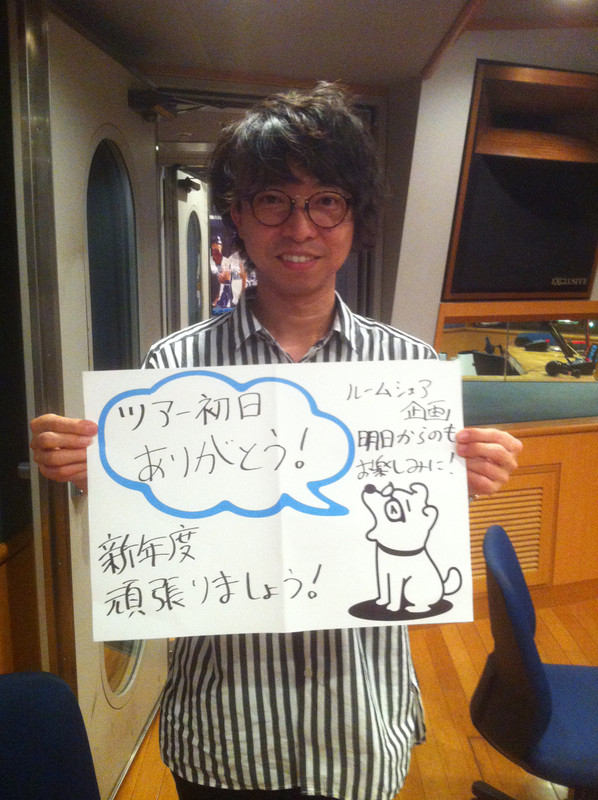 ツアー初日
ありがとう!
ルームシェア
企画
明日からのも
お楽しみに!
新年度
頑張りましょう!
EXCLUSIVE